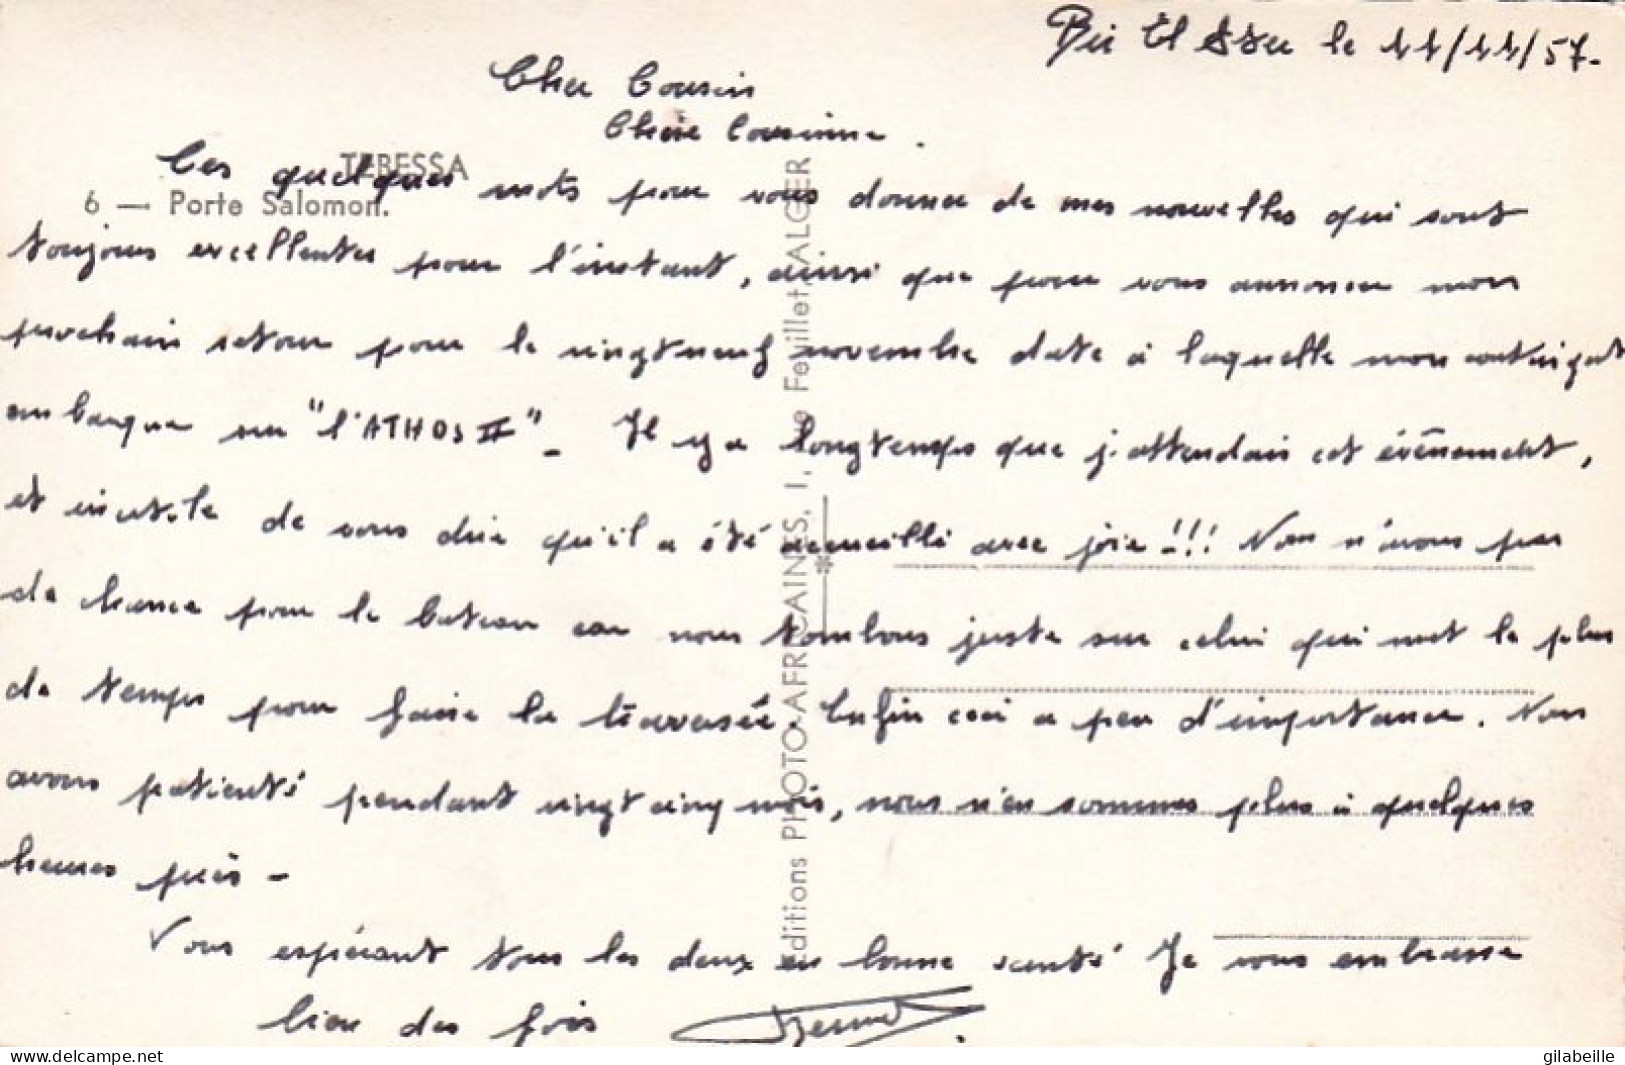 Bir El Ater le 11/11/57.
Cher Cousin
Chère Cousine.
TEBESSA
6 — Porte Salomon.
Ces quelques mots pour vous donner de mes nouvelles qui sont
toujours excellentes pour l'instant, ainsi que pour vous annoncer mon
prochain retour pour le vingt neuf novembre date à laquelle mon contingent
embarque sur "l'ATHOS II" - Il y a longtemps que j'attendais cet évènement,
et inutile de vous dire qu'il a été accueilli avec joie !!! Nous n'avons pas
de chance pour le bateau car nous tombons juste sur celui qui met le plus
de temps pour faire la traversée. Enfin ceci a peu d'importance. Nous
avons patienté pendant vingt cinq mois, nous n'en sommes plus à quelques
heures près -
Vous espérant tous les deux en bonne santé Je vous embrasse
bien des fois
Editions PHOTO-AFRICAINES, 1, e Feuillet, ALGER
gilabeille
www.delcampe.net